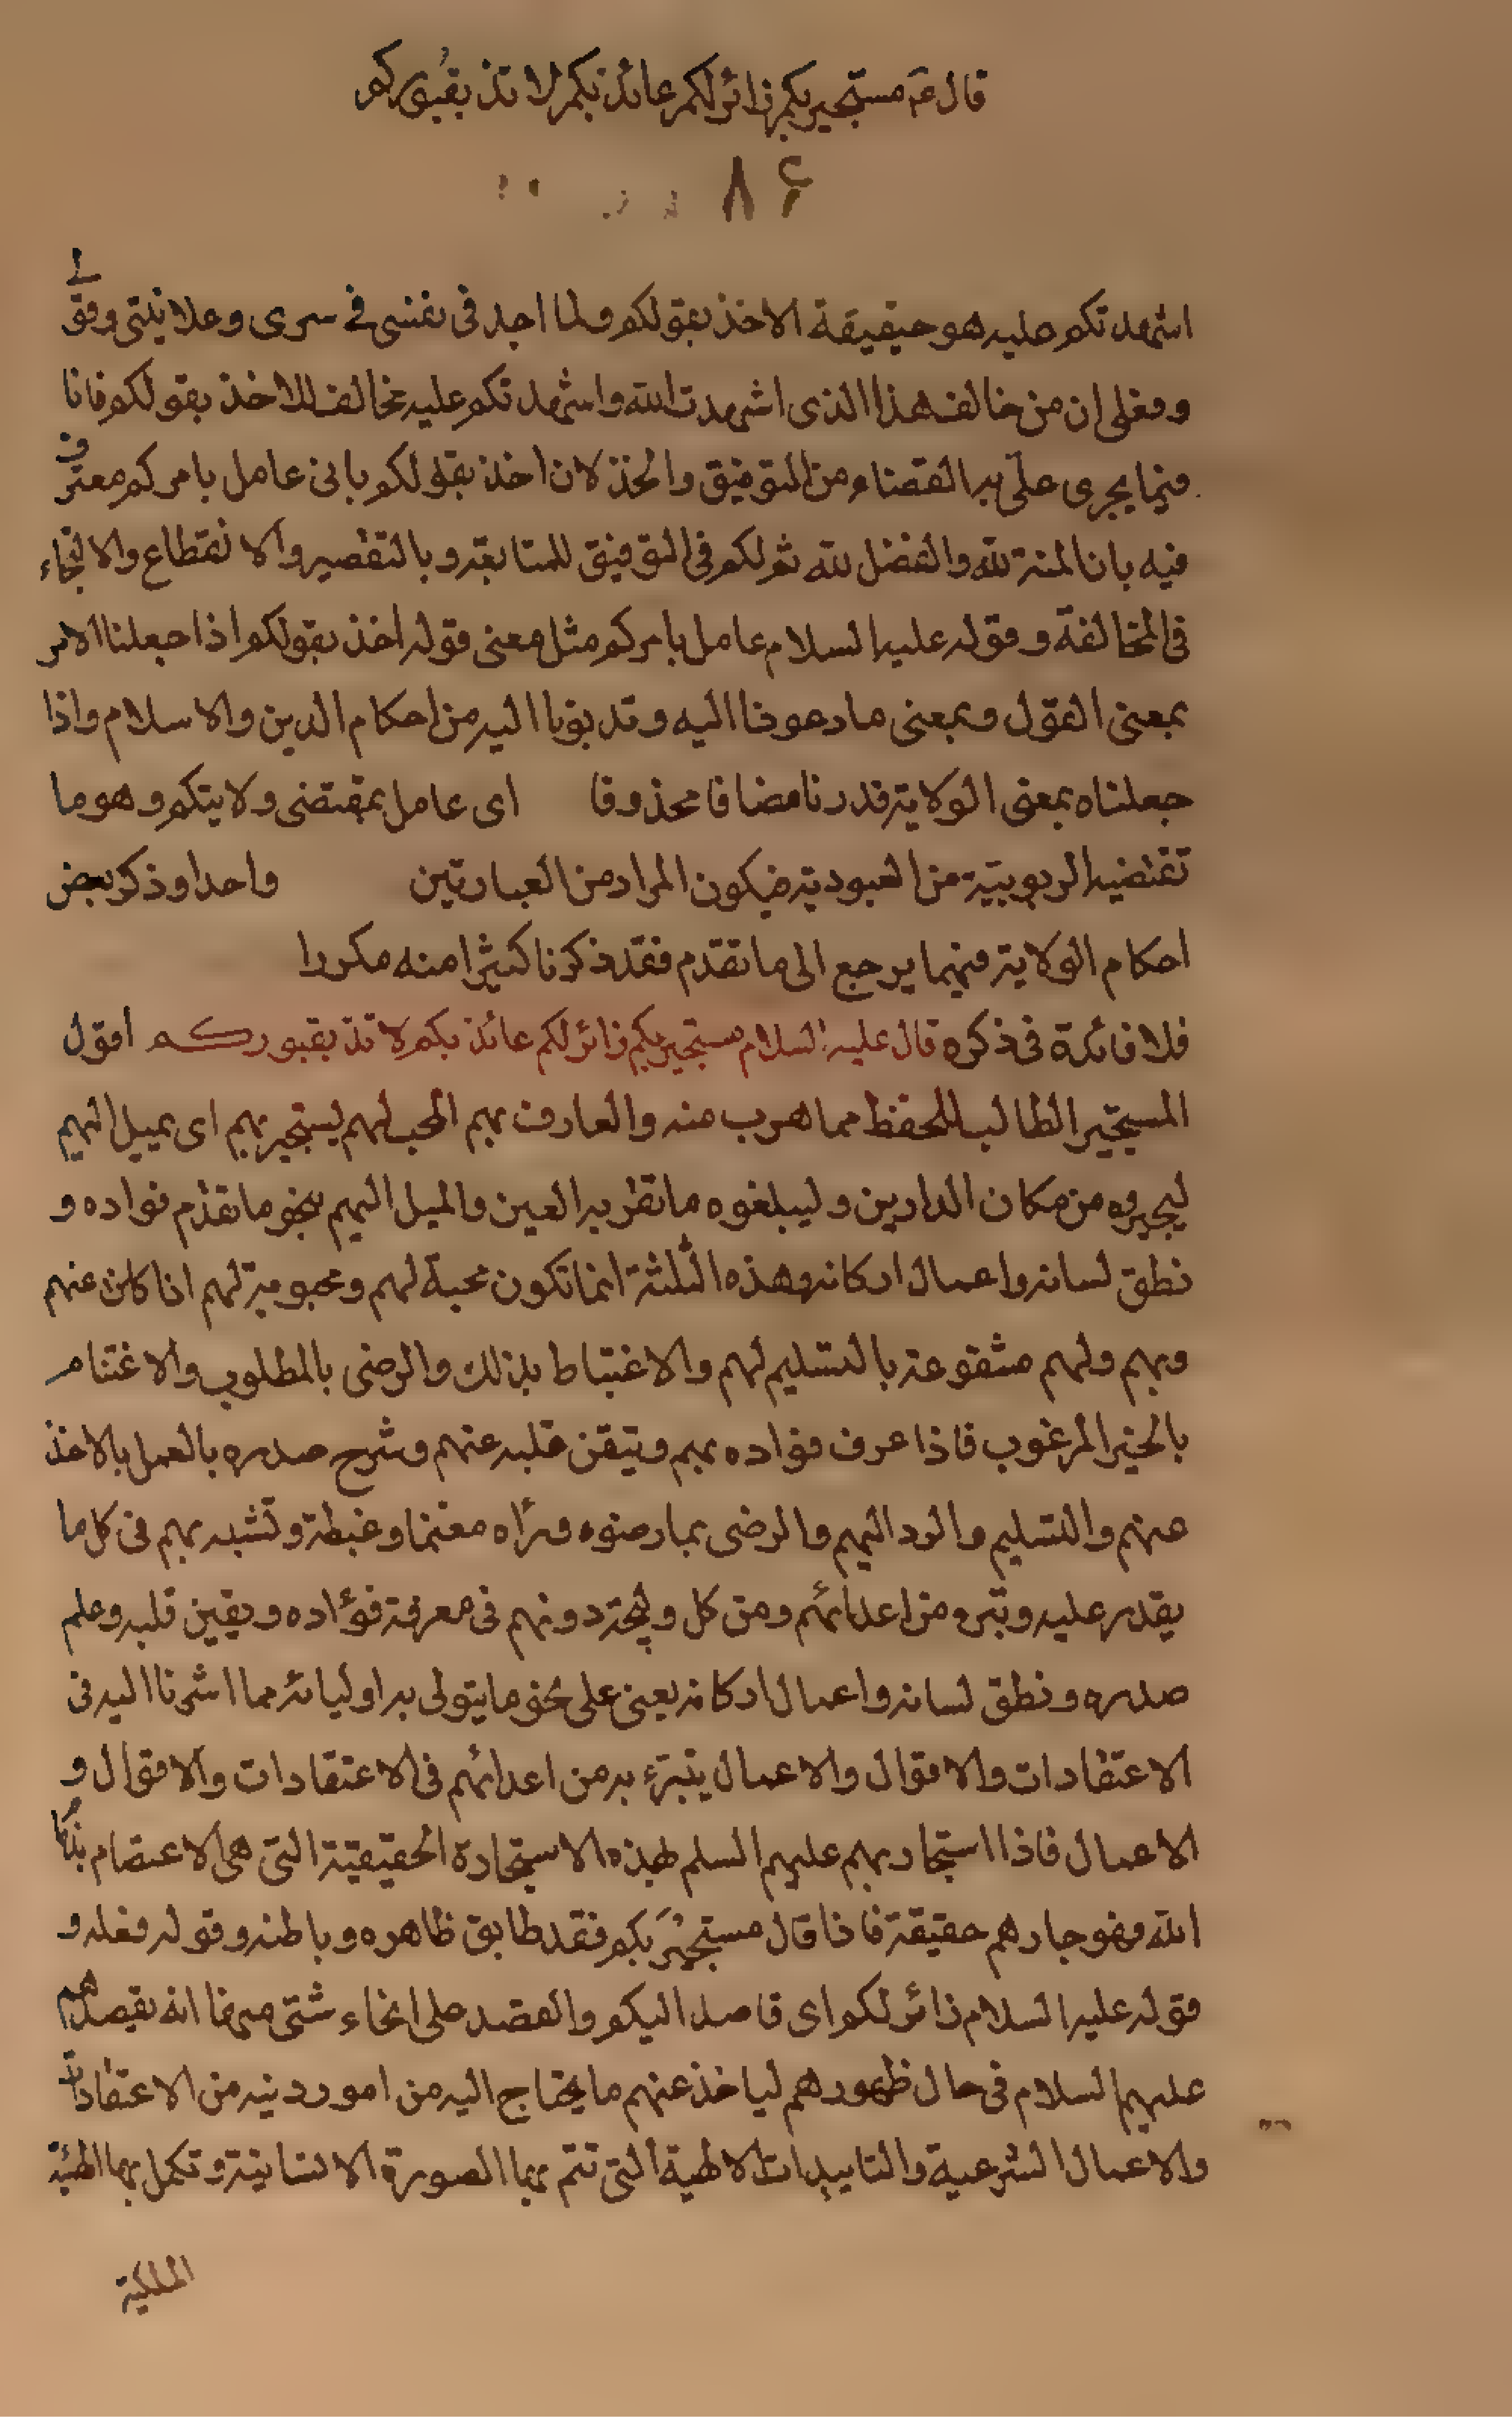 قال ع مستجير بكم زائر لكم عائذ بكم لائذ بقبوركم
٨۶
اشهدتكم عليه هو حقيقة الاخذ بقولكم ولما اجد فى نفسى فے سرى وعلانيتى وقولے
وفعلى ان من خالف هذا الذى اشهدت الله واشهدتكم عليه مخالف للاخذ بقولكم فانا
فيما يجرى علىّ به القضاء من التوفيق والخذلان اخذ بقولكم بانى عامل بامركم معترف
فيه بان المنة لله والفضل لله ثم لكم فى التوفيق للمتابعة وبالتقصير والانقطاع والالتجاء
فى المخالفة وقوله عليه السلام عامل بامركم مثل معنى قوله اخذ بقولكم اذا جعلنا الامر
بمعنى القول وبمعنى ما دعونا اليه وندبونا اليه من احكام الدين والاسلام واذا
جعلناه بمعنى الولاية قدرنا مضافا محذوفا اى عامل بمقتضى ولايتكم وهو ما
تقتضيه الربوبية من العبودية فيكون المراد من العبارتين واحدا وذكر بعض
احكام الولاية فيهما يرجع الى ما تقدم فقد ذكرنا كثيرا منه مكررا
فلا فائدة فى ذكره قال عليه السلام مستجير بكم زائر لكم عائذ بكم لائذ بقبوركم اقول
المستجير الطالب للحفظ مما هرب منه والعارف بهم المحب لهم يستجير بهم اى يميل اليهم
ليجيروه من مكاره الدارين وليبلغوه ما تقر به العين والميل اليهم بنحو ما تقدم فواده و
نطق لسانه واعمال اركانه وهذه الثلثة انما تكون محبة لهم ومحبوبة لهم اذا كانت عنهم
وبهم ولهم مشفوعة بالتسليم لهم والاغتباط بذلك والرضى بالمطلوب والاغتنام
بالخير المرغوب فاذا عرف فواده بهم وتيقن قلبه عنهم وشرح صدره بالعمل بالاخذ
عنهم والتسليم والرد اليهم والرضى بما رضوه ورأه مغنما وغبطة وتشبه بهم فى كل ما
يقدر عليه وتبرء من اعدائهم ومن كل وليجة دونهم فى معرفة فؤاده ويقين قلبه وعلم
صدره ونطق لسانه واعمال اركانه يعنى على نحو ما يتولى به اوليائه مما اشرنا اليه فى
الاعتقادات والاقوال والاعمال يتبرء به من اعدائهم فى الاعتقادات والاقوال و
الاعمال فاذا استجار بهم عليهم السلم بهذه الاستجارة الحقيقية التى هى الاعتصام بذمام
الله فهو جارهم حقيقة فاذا قال مستجير بكم فقد طابق ظاهره وباطنه وقوله فعله و
قوله عليه السلام زائر لكم اى قاصد اليكم والقصد على انحاء شتى منها انه يقصدهم
عليهم السلام فى حال ظهورهم لياخذ عنهم ما يحتاج اليه من امور دينه من الاعتقادات
والاعمال الشرعية والتاييدات الالهية التى تتم بها الصورة الانسانية وتكمل بها الهيئة
الملكية